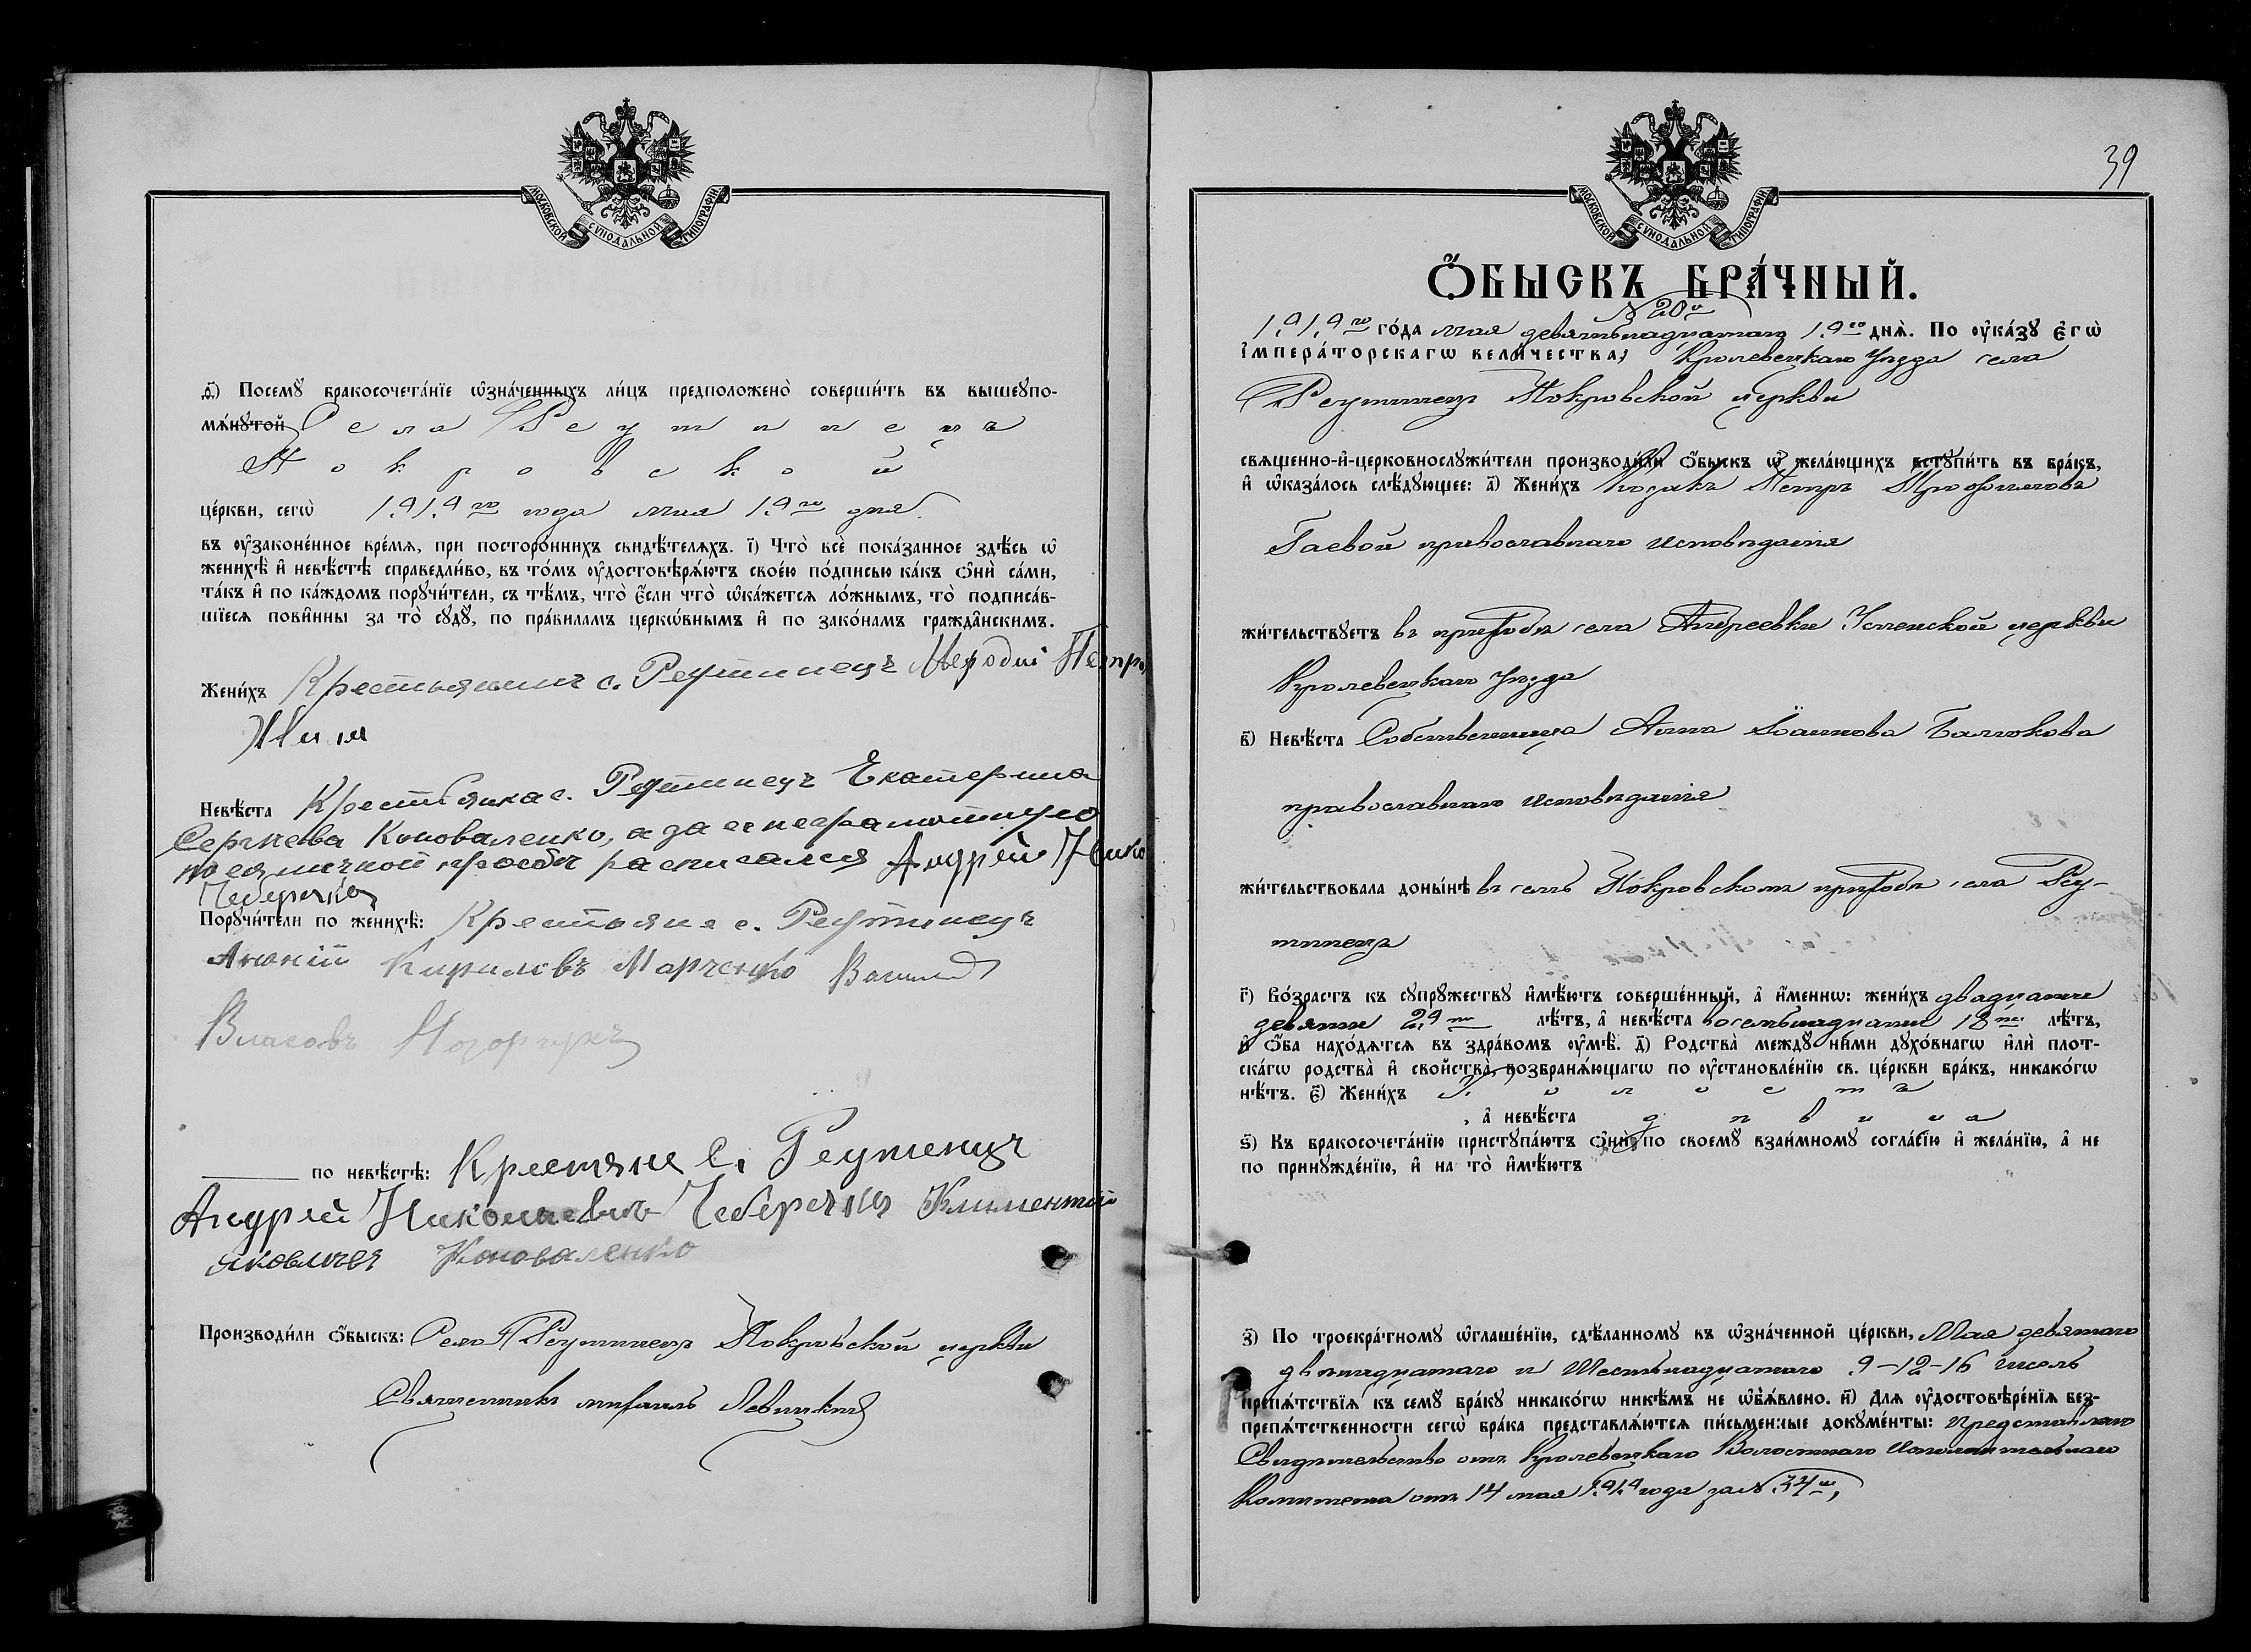 МОСКОВСКОЙ СѴНОДАЛЬНОЙ ТИПОГРАФІИ
д҃і) Посемꙋ̀ бракосочета́нїе ѡ҆зна́ченныхъ ли́цъ предположено̀ соверши́ть въ вышеꙋпо-
мѧ́нꙋтой Села Реутинецъ
Покровской
це́ркви, сегѡ̀ 1919го года мая 19го дня
въ ᲂу҆законе́нное вре́мѧ, при посторо́ннихъ свидѣ́телѧхъ. і҃) Что̀ всѐ пока́занное здѣ́сь ѡ҆
женихѣ̀ и҆ невѣ́стѣ справедли́во, въ то́мъ ᲂу҆достовѣрѧ́ютъ свое́ю по́дписью ка́къ ѻ҆нѝ са́ми,
та́къ и҆ по ка́ждомъ порꙋчи́тели, съ тѣ́мъ, что̀ є҆́сли что̀ ѡ҆ка́жетсѧ ло́жнымъ, то̀ подписа́в-
шїесѧ пови́нны за то̀ сꙋдꙋ̀, по пра́виламъ церкѡ́внымъ и҆ по зако́намъ гражда́нскимъ.
Жени́хъ Крестьянинъ с. Реутинецъ Мефодій Петро
Невѣ́ста Крестьянка с. Реутинецъ Екатерина
Сергѣева Коноваленко, а за ея неграмотную
по ея личной просьбѣ расписался Андрей Нико
Чеберяка
Порꙋчи́тели по женихѣ̀: Крестьяне с. Реутинецъ
Кириловъ Марченко Василий
Власовъ
по невѣ́стѣ: Крестяне С. Реутенцъ
Андрей Николаевичъ Чеберяка Климентий
Яковличъ Коноваленко
Производи́ли ѻ҆́быскъ: Села Реутинецъ Покровской церкви
Священникъ михаилъ Левицкий
39
МОСКОВСКОЙ СѴНОДАЛЬНОЙ ТИПОГРАФІИ
Ѻ҆́БЫСКЪ БРА́ЧНЫЙ.
№ 20й
1919го го́да мая девятьнадцатаго 19го днѧ̀. По ᲂу҆ка́зꙋ є҆гѡ̀
і҆мпера́торскагѡ вели́чества, Кролевецкаго Уѣзда села
Реутинецъ Покровской церкви
свѧщенно-и҆-церковнослꙋжи́тели производи́ли ѻ҆́быскъ ѡ҆ жела́ющихъ встꙋпи́ть въ бра́къ,
и҆ ѡ҆каза́лось слѣ́дꙋющее: а҃) Жени́хъ Козакъ Петръ Трофимовъ
Гаевой православнаго исповѣданія
жи́тельствꙋетъ въ приходѣ села Андреевки Успенской церкви
Кролевецкаго Уѣзда
в҃) Невѣ́ста Собственница Анна Іоаннова Балюкова
православнаго исповѣданія
жи́тельствовала доны́нѣ въ семъ Покровскомъ приходѣ села Реу-
тинецъ
г҃) Во́зрастъ къ сꙋпрꙋ́жествꙋ и҆мѣ́ютъ соверше́нный, а҆ и҆́меннѡ: жени́хъ двадцати
девяти 29ти лѣ́тъ, а҆ невѣ́ста восемьнадцати 18ти лѣ́тъ,
и҆ ѻ҆́ба нахо́дѧтсѧ въ здра́вомъ ᲂу҆мѣ̀. д҃) Родства̀ междꙋ̀ ни́ми дꙋхо́внагѡ и҆лѝ плот-
ска́гѡ родства̀ и҆ свойства̀, возбранѧ́ющагѡ по ᲂу҆становле́нїю св. це́ркви бра́къ, никако́гѡ
нѣ́тъ. є҃) Жени́хъ холостъ
, а҆ невѣ́ста дѣвица
ѕ҃) Къ бракосочета́нїю пристꙋпа́ютъ ѻ҆нѝ по своемꙋ̀ взаи́мномꙋ согла́сїю и҆ жела́нїю, а҆ не
по принꙋжде́нїю, и҆ на то̀ и҆мѣ́ютъ
з҃) По троекра́тномꙋ ѡ҆глаше́нїю, сдѣ́ланномꙋ въ ѡ҆зна́ченной це́ркви, Мая девятаго
двѣнадцатаго и Шестьнадцатаго 9-12-16 числъ
препѧ́тствїѧ къ семꙋ̀ бра́кꙋ никако́гѡ никѣ́мъ не ѡ҆б̾ѧ́влено. и҃) Длѧ ᲂу҆достовѣре́нїѧ без-
препѧ́тственности сегѡ̀ бра́ка представлѧ́ютсѧ пи́сьменные докꙋме́нты: представлено
Свидѣтельство отъ Кролевецкаго Волостного Исполнительнаго
Комитета отъ 14 мая 1919 года за № 34м,